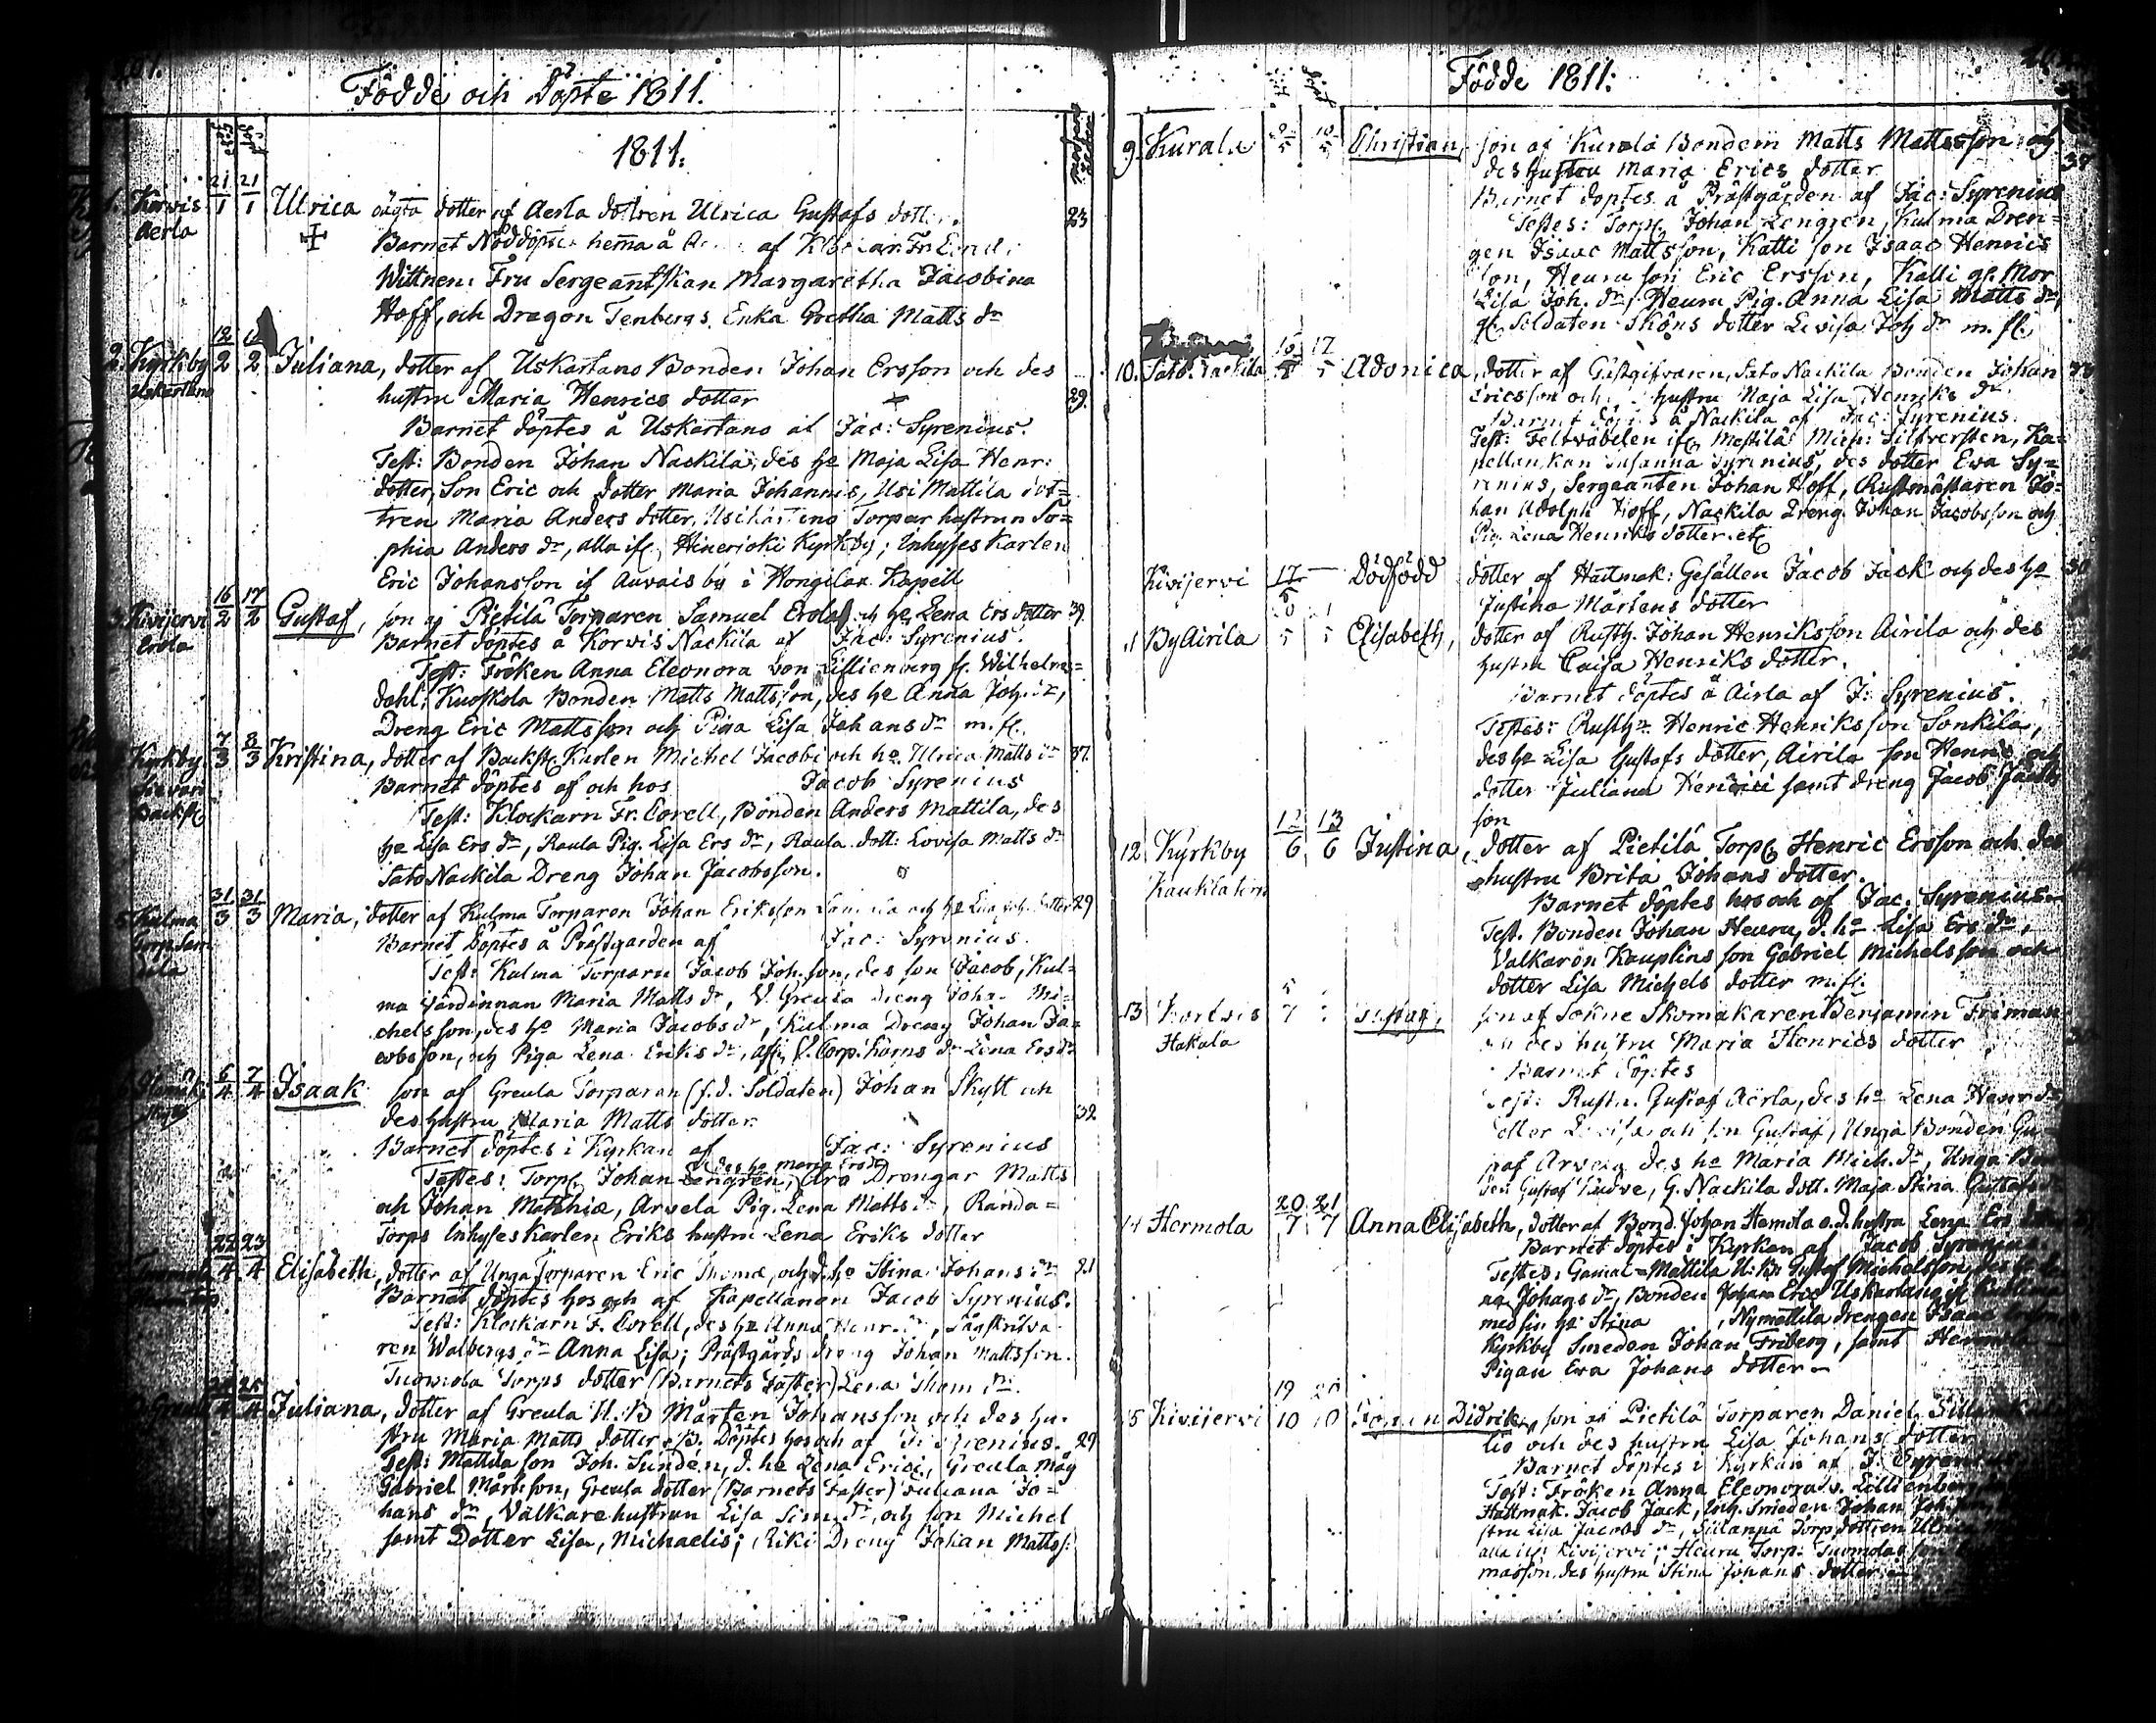 Födde och Döpte 1811.
1811.
1. Korvis 21/1 21/1 Ulrica oägta dotter af Aerla dottren Ulrica Gustafs dotter. 23
Aerla Barnet Nöddöptes hemma å af Klockar. Fr.
Wittnen: Fru Sergeantskan Margaretha Jacobina
Hoff, och Dragon Tenbergs Enka Gretha Matts dr
2. Kyrkby 12/2 /2 Juliana, dotter af Uskartano Bonden Johan Ersson och des
Uskartano hustru Maria Henrics dotter 29.
Barnet döptes å Uskartano af Jac: Syrenius.
Test: Bonden Johan Nackila, des he Maja Lisa Henr:
dotter, Son Eric och dotter Maria Johannis, Usi Mattila dot=
tren Maria Anders dotter, Torpar hustrun So=
phia Anders dr, alla if Hinerioki Kyrkby; Inhyses Karlen
Eric Johansson if Auvais by i Hongilax Kapell
3. Kivijervi 16/2 17/2 Gustaf, son af Pietilä Torparen Samuel Erola och he Lena Ers dotter 39.
Erola Barnet döptes å Korvis Nackila af Jac: Syrenius.
Test: Fröken Anna Eleonora von Lillienberg fr. Wilhelms=
dahl, Kuoskola Bonden Matts Mattsson, des he Anna Joh. dr,
Dreng Eric Mattsson och Piga Lisa Johans dr m. fl.
Kyrkby 7/3 8/3 Kristina, dotter af Backst Karlen Michel Jacobi och he. Ulrica Matts dr 37.
Backst Barnet döptes af och hos Jacob Syrenius
Test: Klockarn Fr. Corell, Bonden Anders Mattila, des
he Lisa Ers dr, Raula Pig. Lisa Ers dr, Raula dott: Lovisa Matts dr
Sato Nackila Dreng Johan Jacobsson.
5. Kulma 31/3 31/3 Maria, dotter af Kulma Torparen Johan Eriksson och he dotter 29
Torp Barnet Döptes å Prästgården af Jac: Syrenius.
Test: Kulma Torparn Jacob Joh. son, des son Jacob, Kul=
ma Värdinnan Maria Matts dr, V. Greula Dreng Joha Mi=
chelsson, des he Maria Jacobs dr, Kulma Dreng Johan Ja=
cobsson, och Piga Lena Eriks dr, Corp. dr Lena Ers dr
6/4 7/4 Isaak son af Greula Torparen (f.d. Soldaten) Johan Skytt och
des hustru Maria Matts dotter. 32
Barnet döptes i Kyrkan af Jac: Syrenius
des he Maria
Testes: Torp. Johan Lengren, Drengar Matts
och Johan Matthiæ, Arvela Pig. Lena Matts dr, Randa=
Torps Inhyseskarlen Eriks hustru Lena Eriks dotter
22/4 23/4 Elisabeth, dotter af Unga Torparen Eric Thomæ, och d. he Stina Johans dr 21
Barnet döptes hos och af Kapellanen Jacob Syrenius.
Test: Klockarn F. Corell, des he Anna Henr. dr,
ren Walbergs dr Anna Lisa; Prästgårds dreng Johan Mattsson.
Tuomola Torps dotter (Barnets Faster) Lena Thom. dr
Greula /4 25/4 Juliana, dotter af Greula U.B Mårten Johansson och des hu=
stru Maria Matts dotter. B. Döptes hos och af J. Syrenius. 29
Test: Mattila son Joh. Sunden, d. he Lena Erici, Greula Måg
Gabriel Mårtsson, Greula dotter (Barnets Faster) Juliana Jo=
hans dr, Valkarehustrun Lisa Sim. dr, och son Michel
samt Dotter Lisa, Michaelis; Riki Dreng Johan Matts:
Födde 1811:
9. Kurala 9/5 10/5 Christian, son af Kurala Bonden Matts Mattsson och 38
des hustru Maria Erics dotter
Barnet döptes å Prästgården af Jac: Syrenius
Testes: Torp. Johan Lengren, Kulma Dren=
gen Isaac Mattsson, Katti son Isaac Henrics
son, Heuru son Eric Ersson, Kalli gl. Mor
Lisa Joh. dr, Heuru Pig. Anna Lisa Matts dr,
gl. Soldaten Sköns dotter Lovisa Joh dr m. fl.
10. Sato Nackila 16/5 17/5 Adonica, dotter af Gästgifvaren, Sato Nackila Bonden Johan
Ericsson och hustru Maja Lisa Henriks dr
Barnet döptes å Nackila af Jac: Syrenius.
Test: Feltväbelen if Mestilä Mich: Silfversten, Ka=
pellanskan Susanna Syrenius, des dotter Eva Sy=
renius, Sergeanten Johan Hoff, Rustmästaren Jo=
han Adolph Hoff, Nackila Dreng Johan Jacobsson och
Pig. Lena Henriks dotter. etc
Kivijervi 17/5 — Dödfödd dotter af Hattmak: Gesällen Jacob Jack och des he 30
Justina Mårtens dotter
11 By Airila /5 /5 Elisabeth, dotter af Rusth. Johan Henriksson Airila och des
hustru Caisa Henriks dotter.
Barnet döptes å Airla af J: Syrenius.
Testes: Rusth. Henric Henriksson Sonkila,
des he Lisa Gustafs dotter, Airila son Henric och
dotter Juliana Henrici samt dreng Jacob Jacobs
son
12 Kyrkby 12/6 13/6 Justina, dotter af Pietilä Torp. Henric Ersson och des
hustru Brita Johans dotter.
Barnet döptes hos och af Jac. Syrenius
Test. Bonden Johan Heuru, d. he Lisa Ers dr,
Valkarön Kauplins son Gabriel Michelsson och
dotter Lisa Michels dotter m. fl.
13 Korlvis 5/7 Gustaf, son af Sokne Skomakaren Benjamin Friman
Hakala och des hustru Maria Henrics dotter
Barnet döptes
Test: Rusth. Gustaf Aerla, des he Lena Henr dr
dotter och son Gustaf, Unga Bonden Gu=
staf Arvela des he Maria Mich. dr, Unga
den Gustaf, G. Nackila dott. Maja Stina Gustafs
14 Hermola 20/7 21/7 Anna Elisabeth, dotter af Bond. Johan Hemola o. d. hustru Lena Ers dotter
Barnet döptes i Kyrkan af Jacob Syrenius
Testes: Gamal Mattila U:Bn Gustaf Michelsson
Johans dr, Bonden Johan Eric Uskartano if
med sin he Stina , Nymattila drengen Isaac
Kyrkby Smeden Johan Friberg, samt Hemmola
Pigan Eva Johans dotter
15 Kivijervi 19/10 20/10 Johan Didrik, son af Pietilä Torparen Daniel
lio och des hustru Lisa Johans dotter
Barnet döptes i Kyrkan af J. Syrenius
Test: Fröken Anna Eleonora v. Lillienberg
Hattmak. Jacob Jack, Inh. Smeden Johan Joh.
stru Lisa Jacobs dr, Torp dottren Ulrica
alla if Kivijervi; Heuru Torp: Tuomolas son
masson, des hustru Stina Johans dotter